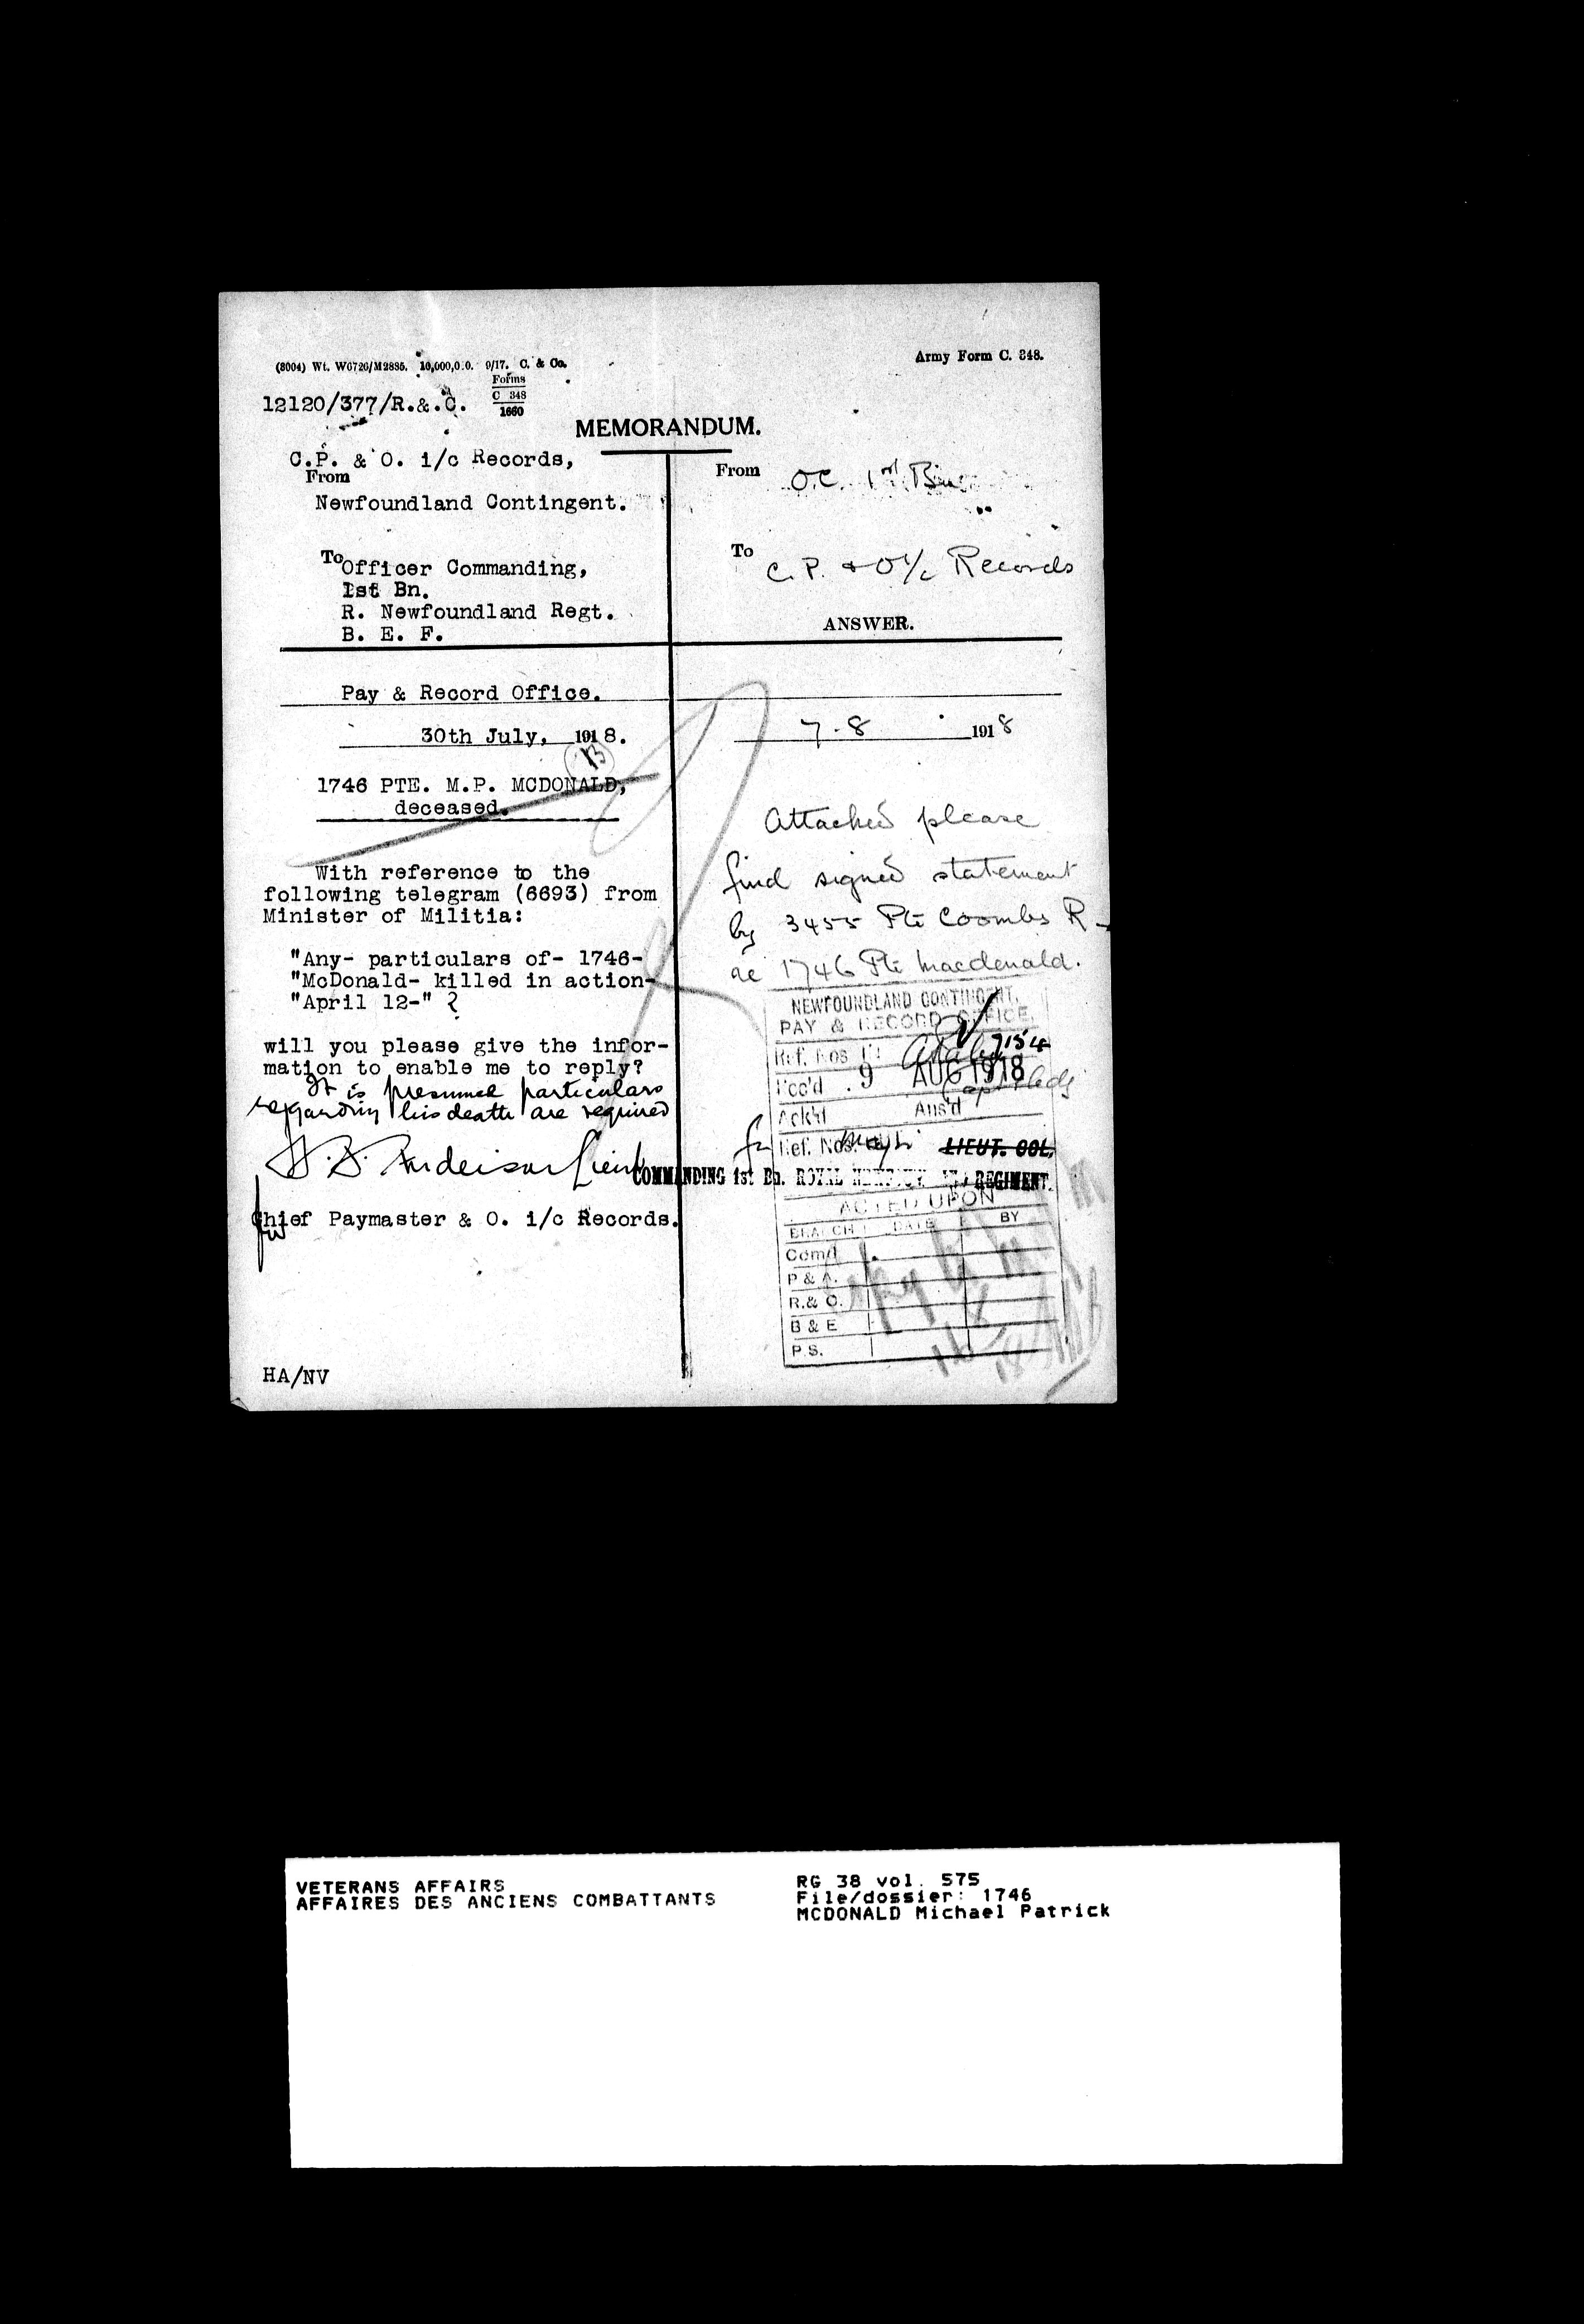 (8004) Wt. W6726/M2885. 10,000,000. 9/17. C. & Co.
Forms
C 348
1660
Army Form C. 348.
12120/377/R.&.C.
MEMORANDUM.
C.P. & O. i/c Records,
From
Newfoundland Contingent.
To Officer Commanding,
1st Bn.
R. Newfoundland Regt.
B. E. F.
Pay & Record Office.
30th July, 1918.
1746 PTE. M.P. MCDONALD,
deceased.
With reference to the
following telegram (6693) from
Minister of Militia:
"Any- particulars of- 1746-
"McDonald- killed in action-
"April 12-" ?
will you please give the infor-
mation to enable me to reply?
It is presumed particulars
regarding his death are required
Lieut
Chief Paymaster & O. i/c Records.
HA/NV
From O.C. 1st Bn
To C.P. & O i/c Records
ANSWER.
7-8 1918
Attached please
find signed statement
by 3455 Pte Coombs R-
re 1746 Pte Macdonald.
NEWFOUNDLAND CONTINGENT,
PAY & RECORD OFFICE,
Ref. Nos 7154
Rec'd 9 AUG 1918
Ack'd Ans'd
Ref. Nos.
LIEUT. COL.
COMMANDING 1st Bn. ROYAL REGIMENT.
ACTED UPON
BRANCH DATE BY
Comd
P & A.
R.& O.
B & E
P.S.
VETERANS AFFAIRS
AFFAIRES DES ANCIENS COMBATTANTS
RG 38 vol. 575
File/dossier: 1746
MCDONALD Michael Patrick